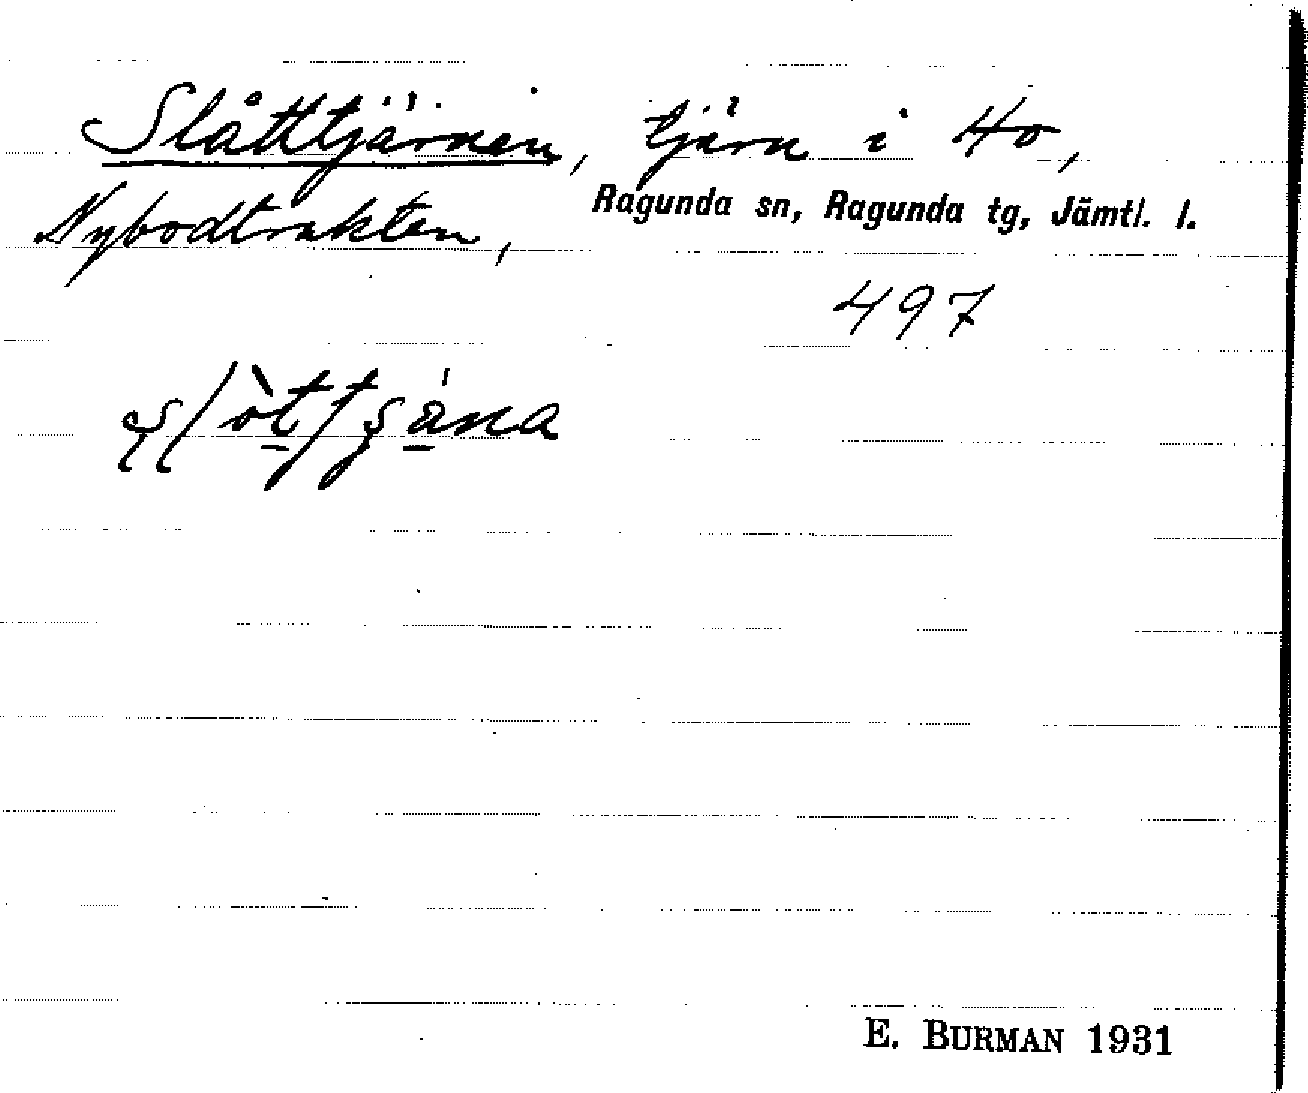 Slåttjärnen, tjärn i 40,
Nybodtrakten, Ragunda sn, Ragunda tg, Jämtl. l.
497
E. BURMAN 1931